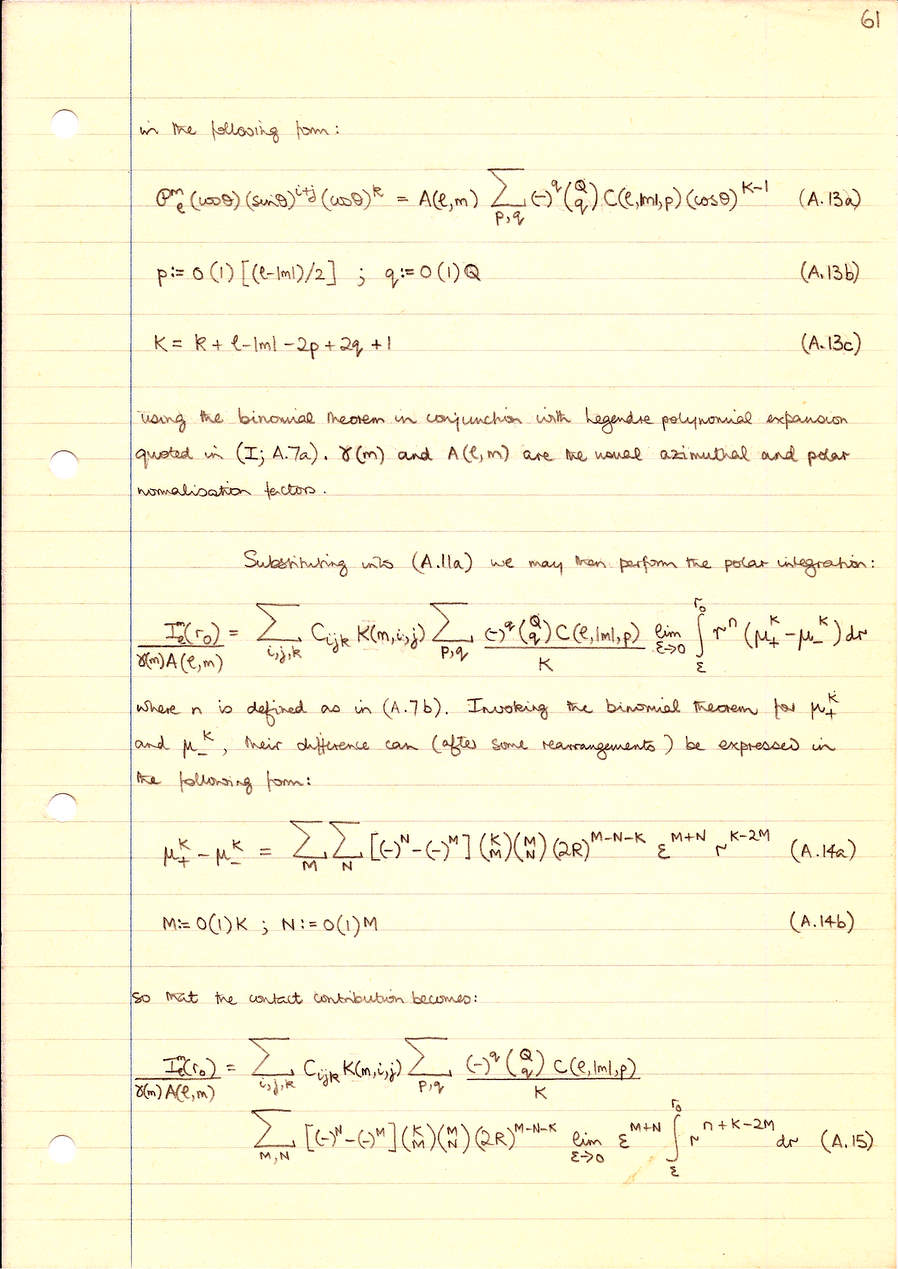 61
in the following form:
𝒫ₗᵐ(cosθ)(sinθ)^{i+j}(cosθ)^k = A(ℓ,m) ∑_{p,q} (-)^q (Q q) C(ℓ,|m|,p)(cosθ)^{K-1} (A.13a)
p:= 0(1)[(ℓ-|m|)/2] ; q:= 0(1)Q (A.13b)
K = k + ℓ-|m| -2p + 2q +1 (A.13c)
using the binomial theorem in conjunction with Legendre polynomial expansion
quoted in (I; A.7a). γ(m) and A(ℓ,m) are the usual azimuthal and polar
normalisation factors.
Substituting into (A.11a) we may then perform the polar integration:
I_ℓ^m(r₀)/γ(m)A(ℓ,m) = ∑_{i,j,k} C_{ijk} K(m,i,j) ∑_{p,q} (-)^q (Q q) C(ℓ,|m|,p)/K lim_{ε→0} ∫_ε^{r₀} r^n (μ₊^K - μ₋^K) dr
where n is defined as in (A.7b). Invoking the binomial theorem for μ₊^K
and μ₋^K, their difference can (after some rearrangements) be expressed in
the following form:
μ₊^K - μ₋^K = ∑_M ∑_N [(-)^N - (-)^M] (K M)(M N)(2R)^{M-N-K} ε^{M+N} r^{K-2M} (A.14a)
M:= 0(1)K ; N:= 0(1)M (A.14b)
so that the contact contribution becomes:
I_ℓ^m(r₀)/γ(m)A(ℓ,m) = ∑_{i,j,k} C_{ijk} K(m,i,j) ∑_{p,q} (-)^q (Q q) C(ℓ,|m|,p)/K
∑_{M,N} [(-)^N - (-)^M] (K M)(M N)(2R)^{M-N-K} lim_{ε→0} ε^{M+N} ∫_ε^{r₀} r^{n+K-2M} dr (A.15)